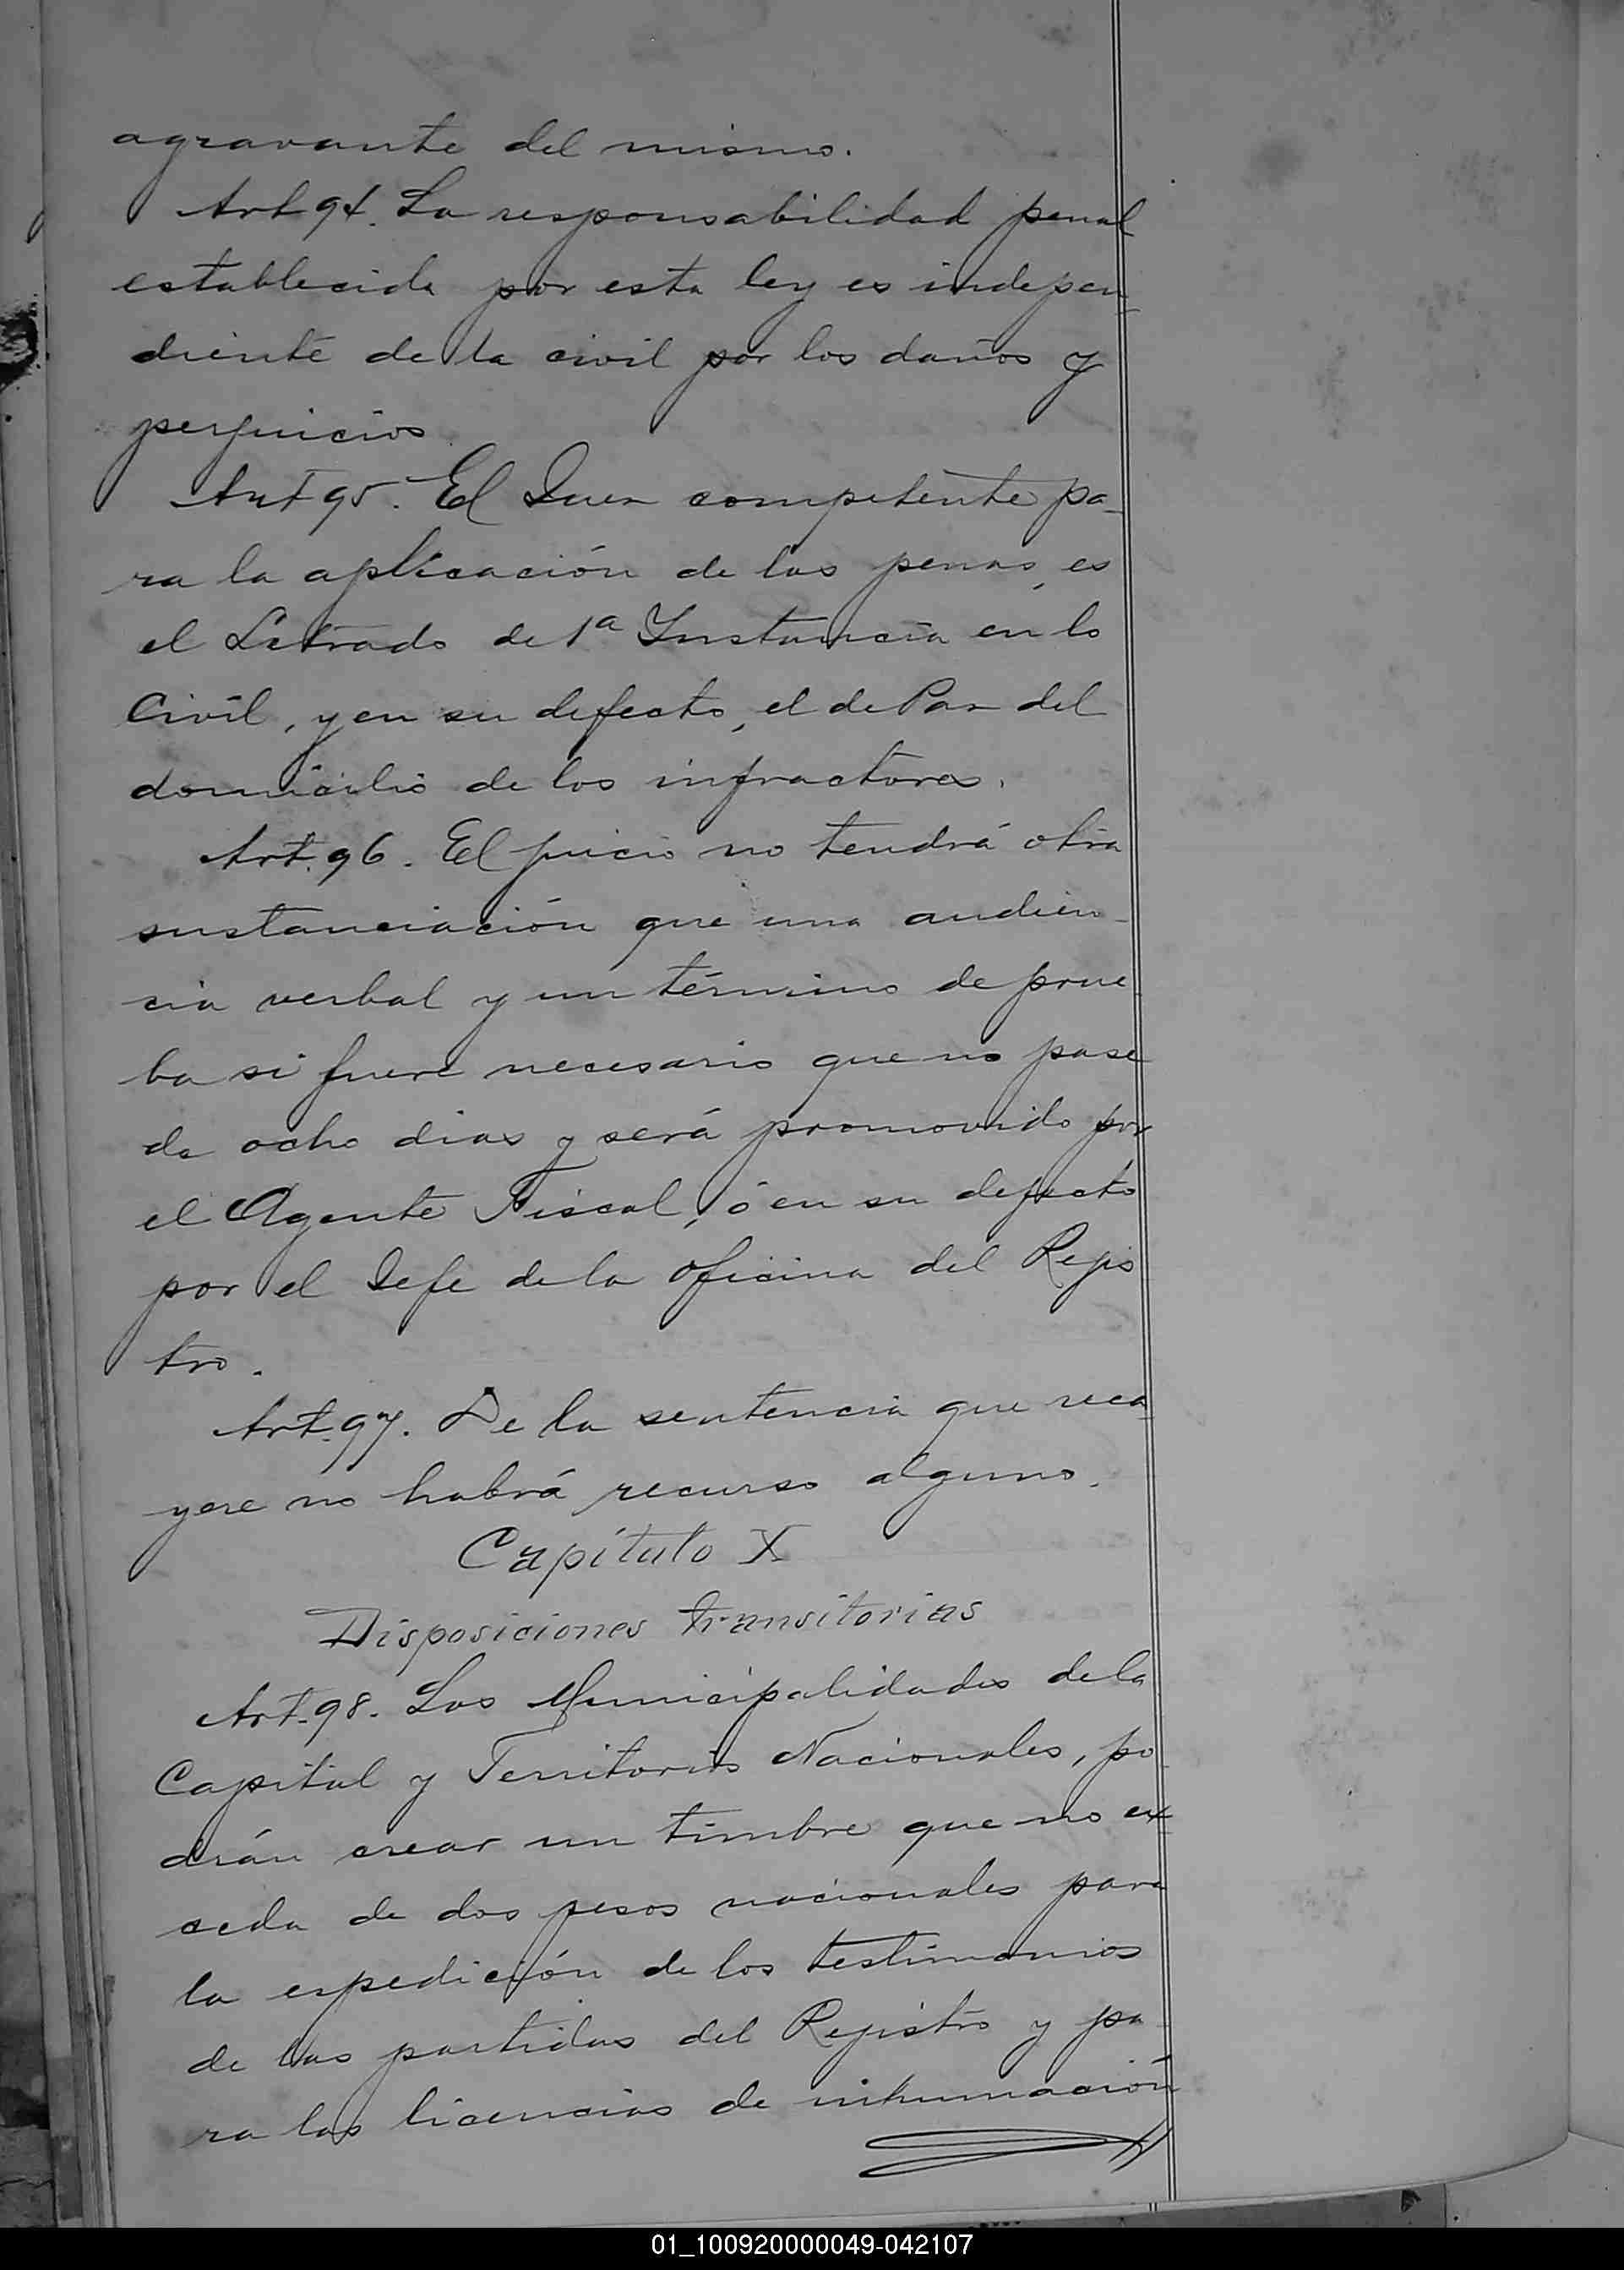 agravante del mismo.
Art 94. La responsabilidad penal
establecida por esta ley es indepen-
diente de la civil por los daños y
perjuicios
Art 95. El Juez competente pa-
ra la aplicación de las penas, es
el Letrado de 1ª Instancia en lo
Civil, y en su defecto, el de Paz del
domicilio de los infractores.
Art. 96. El juicio no tendrá otra
sustanciación que una audien-
cia verbal y un término de prue-
ba si fuere necesario que no pase
de ocho dias y será promovido por
el Agente Fiscal, ó en su defecto
por el Jefe de la oficina del Regis
tro.
Art. 97. De la sentencia que reca
yere no habrá recurso alguno.
Capítulo X
Disposiciones transitorias
Art. 98. Las Municipalidades de la
Capital y Territorios Nacionales, po
drán crear un timbre que no ex
ceda de dos pesos nacionales para
la espedición de los testimonios
de las partidas del Registro y pa
ra las licencias de inhumación
01_100920000049-042107